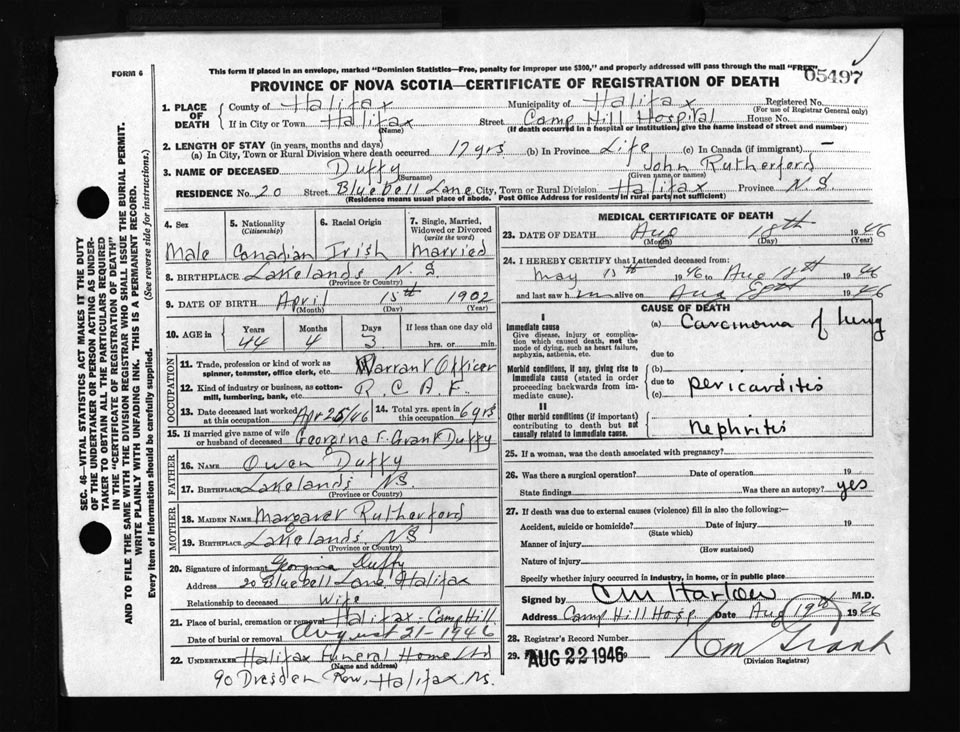 FORM 6
This form if placed in an envelope, marked "Dominion Statistics—Free, penalty for improper use $300," and properly addressed will pass through the mail "FREE"
05497
PROVINCE OF NOVA SCOTIA—CERTIFICATE OF REGISTRATION OF DEATH
1. PLACE OF DEATH
County of Halifax Municipality of Halifax Registered No.
(For use of Registrar General only)
If in City or Town Halifax Street Camp Hill Hospital House No.
(Name) (If death occurred in a hospital or institution, give the name instead of street and number)
2. LENGTH OF STAY (in years, months and days)
(a) In City, Town or Rural Division where death occurred 17 yrs (b) In Province Life (c) In Canada (if immigrant) —
3. NAME OF DECEASED Duffy John Rutherford
(Surname) (Given name or names)
RESIDENCE No. 20 Street Bluebell Lane City, Town or Rural Division Halifax Province N.S.
(Residence means usual place of abode. Post Office Address for residents in rural parts not sufficient)
4. Sex
Male
5. Nationality (Citizenship)
Canadian
6. Racial Origin
Irish
7. Single, Married, Widowed or Divorced (write the word)
Married
8. BIRTHPLACE Lakelands N.S.
(Province or Country)
9. DATE OF BIRTH April 15th 1902
(Month) (Day) (Year)
10. AGE in Years Months Days If less than one day old
44 4 3 hrs. or min.
OCCUPATION
11. Trade, profession or kind of work as spinner, teamster, office clerk, etc. Warrant Officer
12. Kind of industry or business, as cotton-mill, lumbering, bank, etc. R.C.A.F.
13. Date deceased last worked at this occupation Apr 25/46 14. Total yrs. spent in this occupation 6 yrs
15. If married give name of wife or husband of deceased Georgina F. Grant Duffy
FATHER
16. NAME Owen Duffy
17. BIRTHPLACE Lakelands N.S.
(Province or Country)
MOTHER
18. MAIDEN NAME Margaret Rutherford
19. BIRTHPLACE Lakelands N.S
(Province or Country)
20. Signature of informant Georgina Duffy
Address 20 Bluebell Lane, Halifax
Relationship to deceased Wife
21. Place of burial, cremation or removal Halifax - Camp Hill
Date of burial or removal August 21 - 1946
22. UNDERTAKER Halifax Funeral Home Ltd
(Name and address)
90 Dresden Row, Halifax, N.S.
MEDICAL CERTIFICATE OF DEATH
23. DATE OF DEATH Aug 18th 1946
(Month) (Day) (Year)
24. I HEREBY CERTIFY that I attended deceased from:
May 15th 1946 to Aug 1946
and last saw him alive on Aug 1946
CAUSE OF DEATH
I
Immediate cause
Give disease, injury or complication which caused death, not the mode of dying, such as heart failure, asphyxia, asthenia, etc.
(a) Carcinoma of lung
due to
Morbid conditions, if any, giving rise to immediate cause (stated in order proceeding backwards from immediate cause).
(b)
due to pericarditis
(c)
II
Other morbid conditions (if important) contributing to death but not causally related to immediate cause.
Nephritis
25. If a woman, was the death associated with pregnancy?
26. Was there a surgical operation? Date of operation 19
State findings Was there an autopsy? yes
27. If death was due to external causes (violence) fill in also the following:—
Accident, suicide or homicide? Date of injury 19
(State which)
Manner of injury
(How sustained)
Nature of injury
Specify whether injury occurred in industry, in home, or in public place
Signed by CM Harlow M.D.
Address Camp Hill Hosp Date Aug 19th 1946
28. Registrar's Record Number
29. AUG 22 1946
(Division Registrar)
SEC. 46—VITAL STATISTICS ACT MAKES IT THE DUTY
OF THE UNDERTAKER OR PERSON ACTING AS UNDER-
TAKER TO OBTAIN ALL THE PARTICULARS REQUIRED
IN THE "CERTIFICATE OF REGISTRATION OF DEATH"
AND TO FILE THE SAME WITH THE DIVISION REGISTRAR WHO SHALL ISSUE THE BURIAL PERMIT.
WRITE PLAINLY WITH UNFADING INK. THIS IS A PERMANENT RECORD.
Every item of information should be carefully supplied. (See reverse side for instructions.)